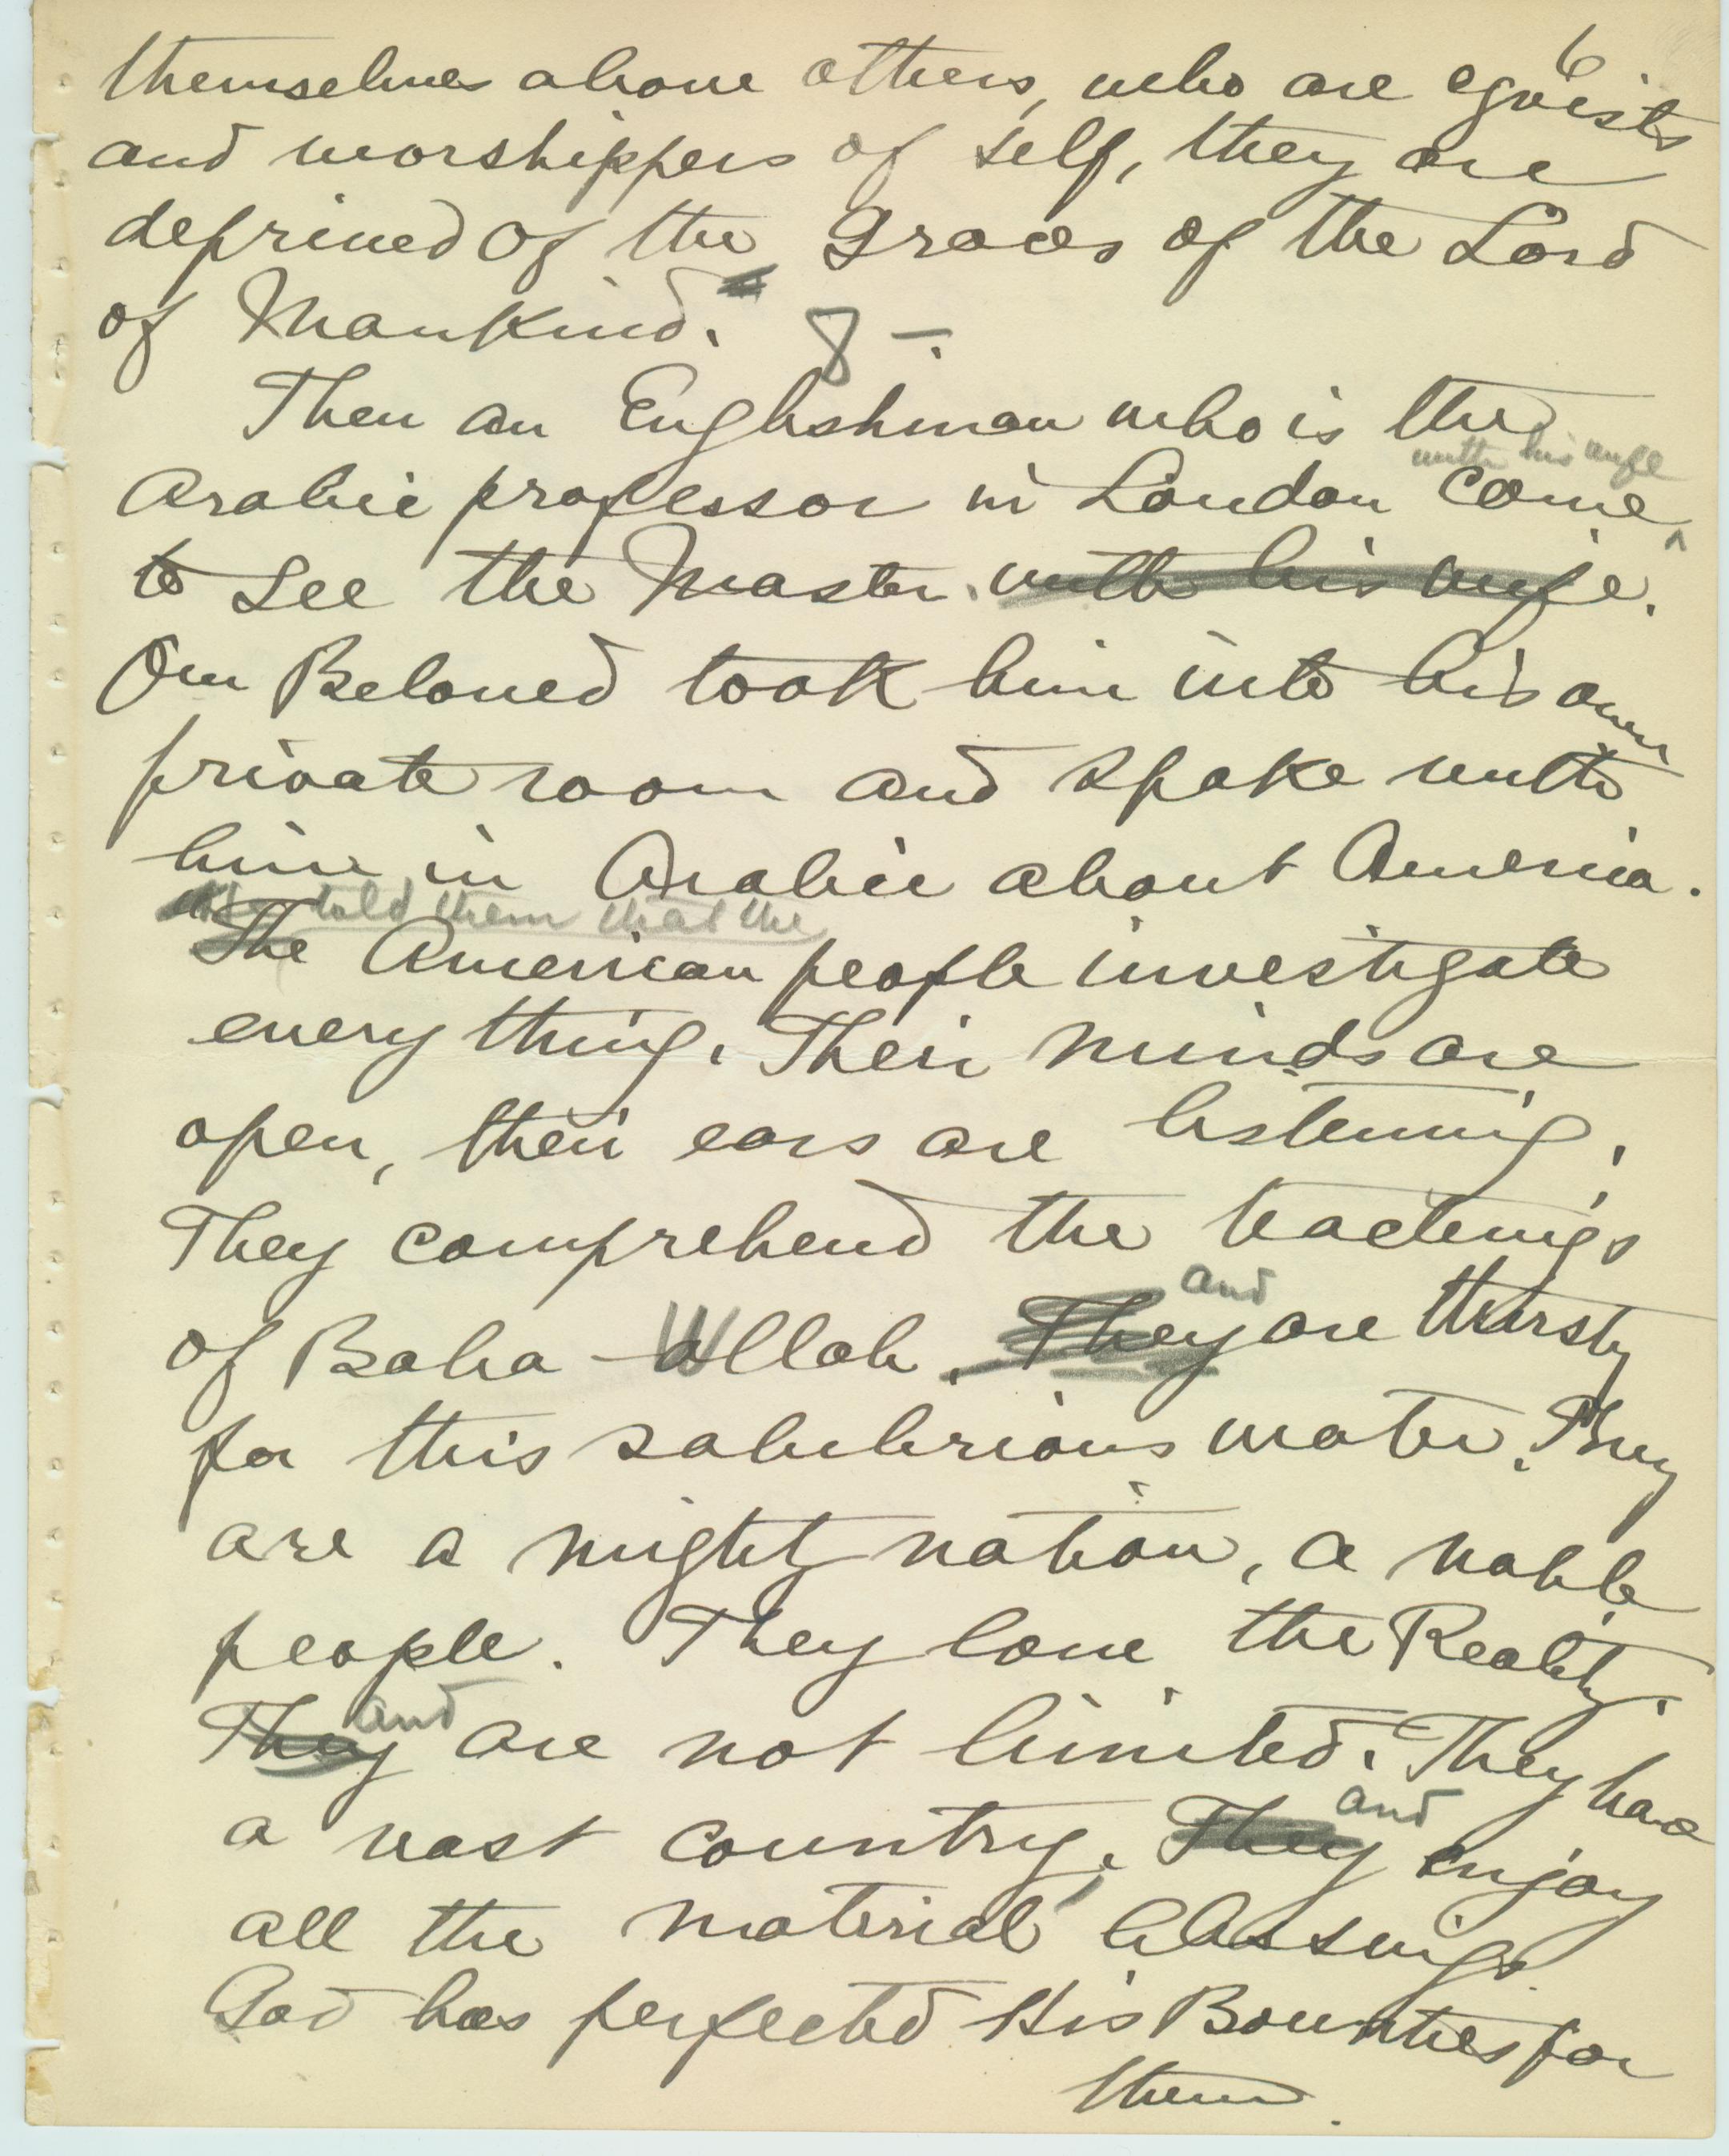 6
themselves above others, who are egoists
and worshippers of self, they are
deprived of the Graces of the Lord
of Mankind. 8 -.
Then an Englishman who is the
with his wife
Arabic professor in London came ^
to see the Master. with his wife.
Our Beloved took him into his own
private room and spoke with
him in Arabic about America.
He told them that the
The American people investigate
every thing. Their minds are
open, their ears are listening.
They comprehend the teachings
and
of Baha-Ullah. They are thirsty
for this salubrious water. They
are a mighty nation, a noble
people. They love the Reality.
and
They are not limited. They have
and
a vast country. They enjoy
all the material blessings.
God has perfected His Bounties for
them.